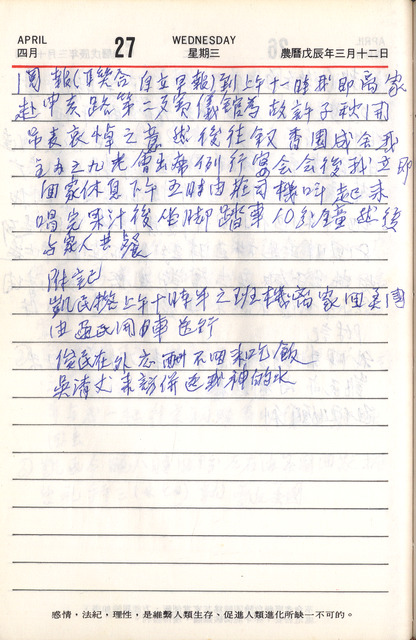 APRIL
四月
27
WEDNESDAY
星期三
農曆戊辰年三月十二日
週報(聯合 自立早報)到上午十一時半即離家
赴辛亥路第二殯儀館為故許子秋開
弔表哀悼之意 然後往叙香園成会我
主五三九老會出席例行宴会会後我立即
回家休息下午五時由莊司機叫起来
喝完果汁後坐脚踏車10分鐘然後
与家人共餐
附記
凱民搭上午十時半之班機離家回美国
由亞民開車送行
俊民在外应酬不回来吃飯
吳清文来訪併送我神的水
感情，法紀，理性，是維繫人類生存、促進人類進化所缺一不可的。